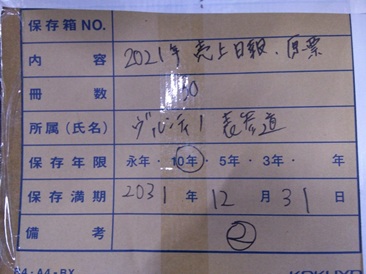 保存箱NO.
内容 2021年 売上日報、伝票
冊数 30
所属(氏名) ヴルディー 表参道
保存年限 永年・10年・5年・3年・ 年
保存満期 2031年 12月 31日
備考 ②
B4・A4-BX KOKUYO